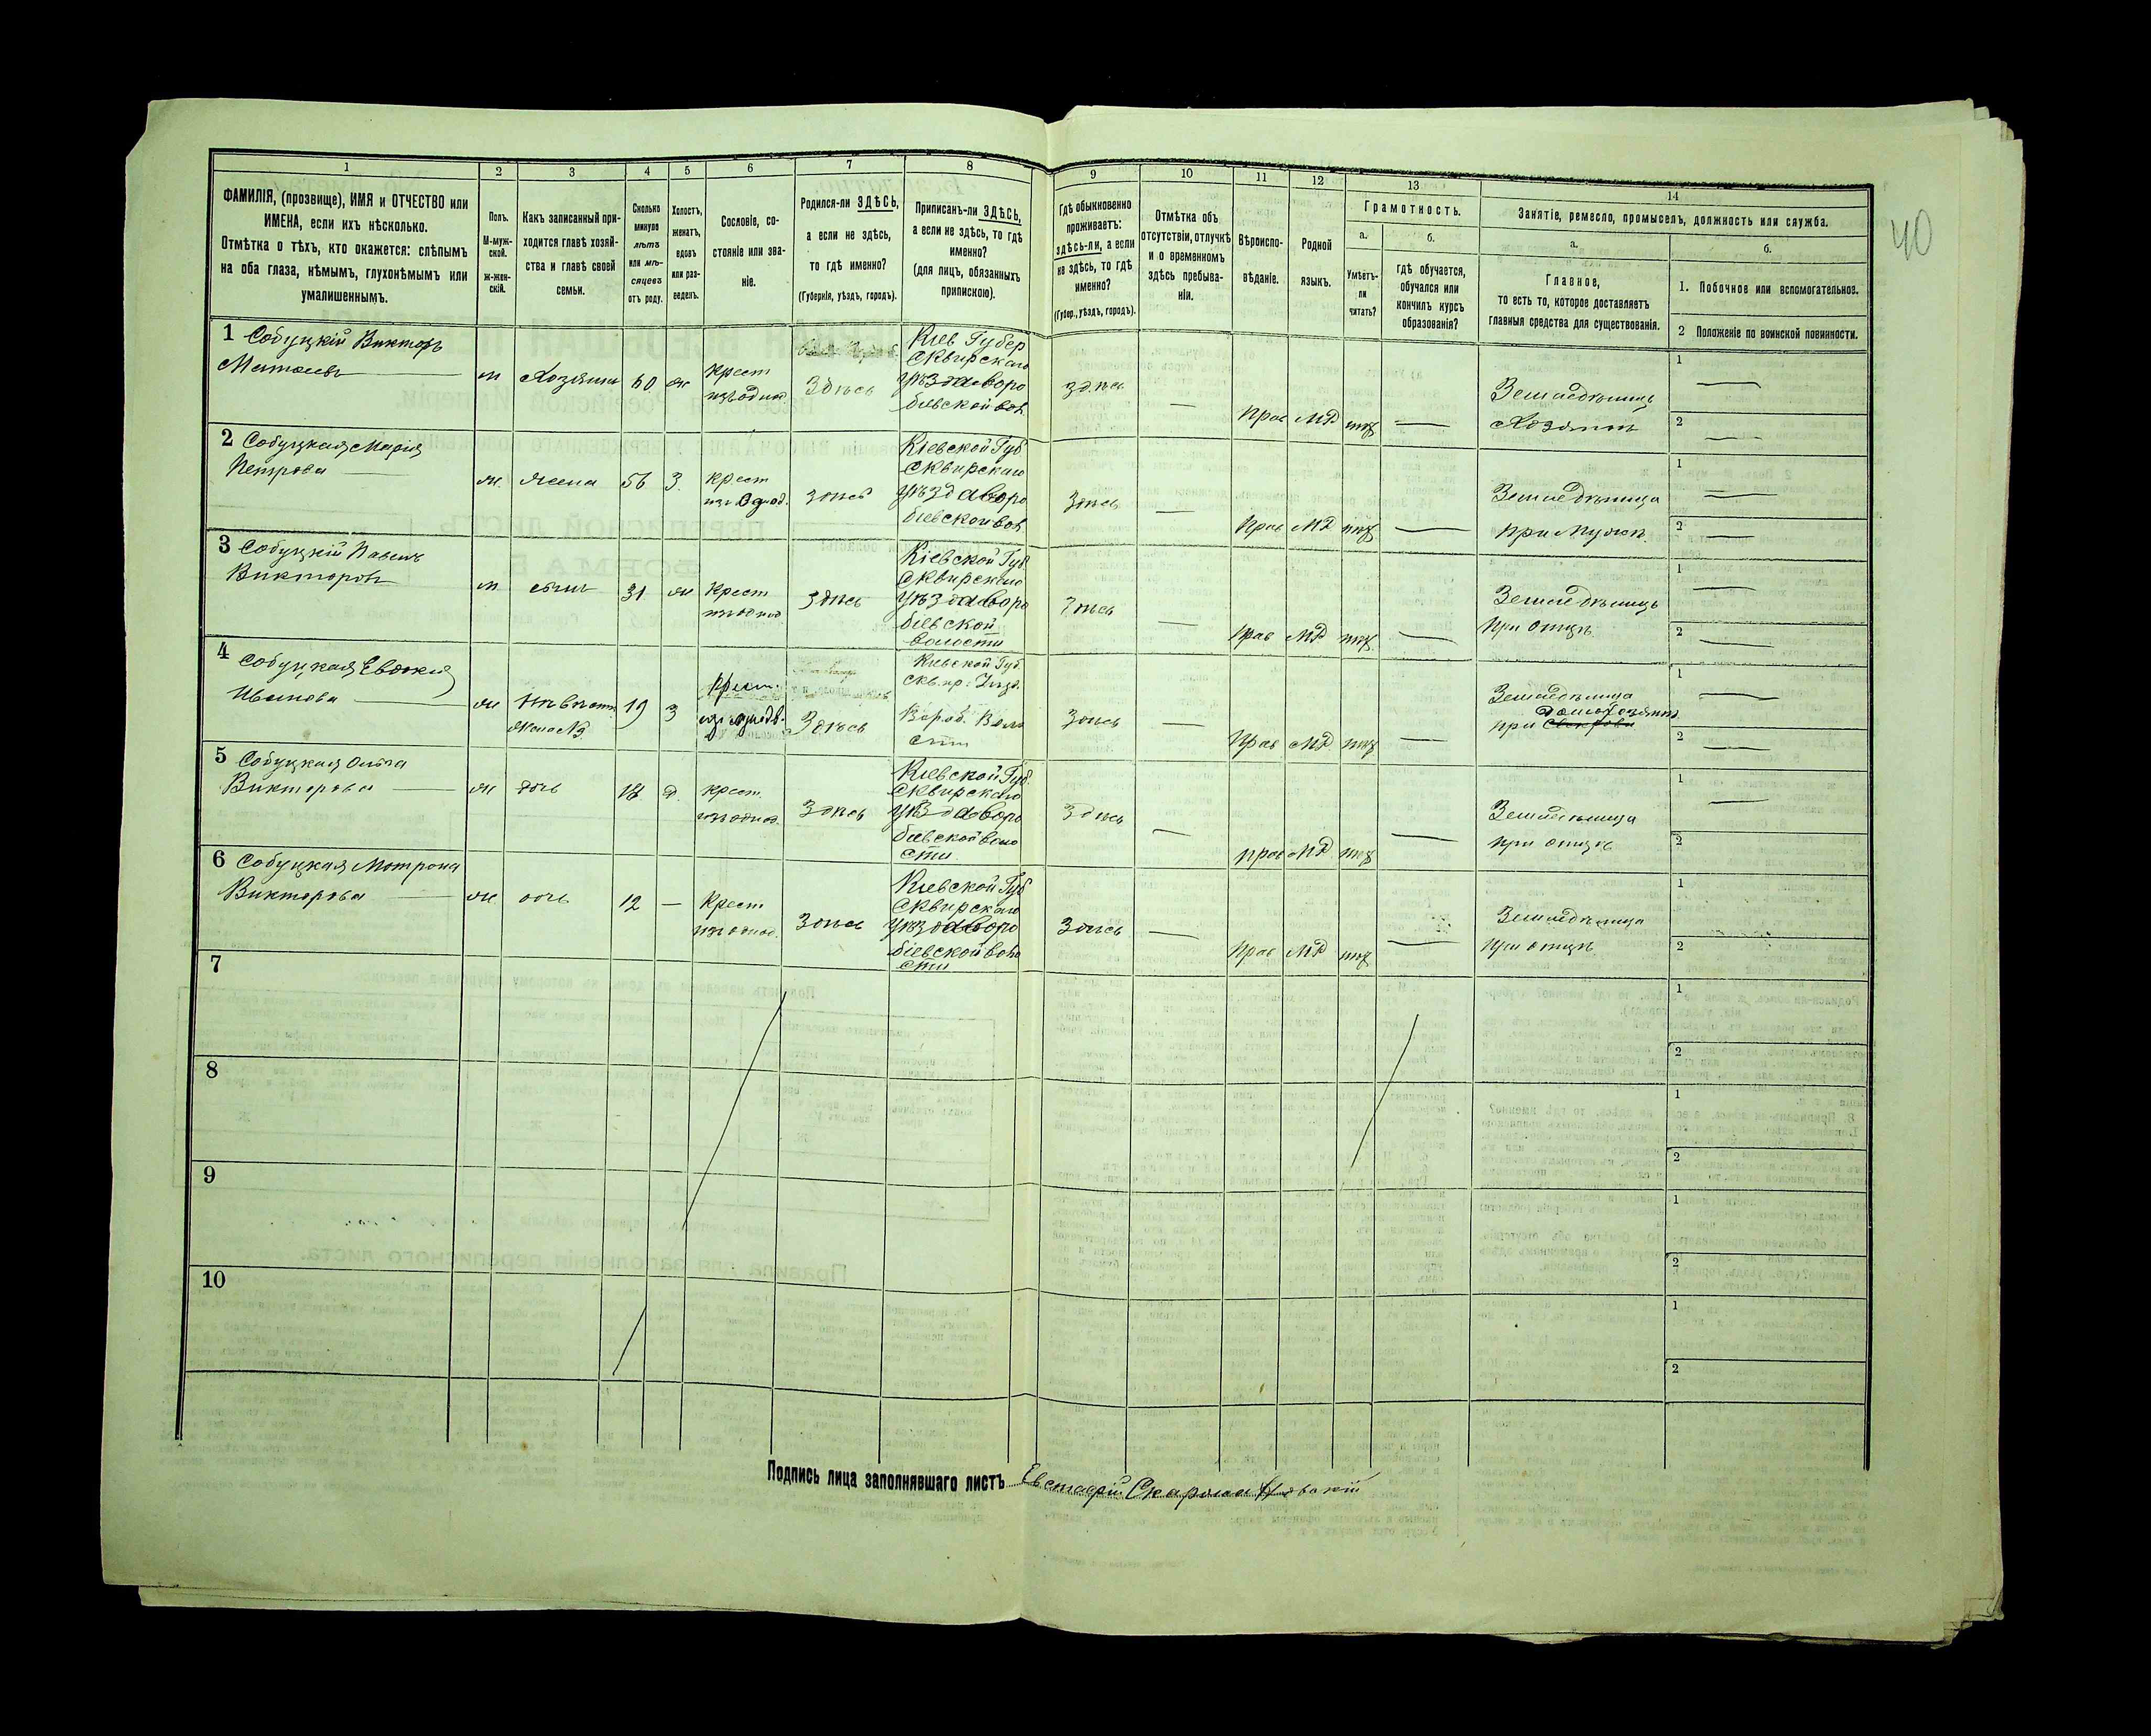 1
2
3
4
5
6
7
8
9
10
11
12
13
14
ФАМИЛІЯ, (прозвище), ИМЯ и ОТЧЕСТВО или
ИМЕНА, если ихъ нѣсколько.
Отмѣтка о тѣхъ, кто окажется: слѣпымъ
на оба глаза, нѣмымъ, глухонѣмымъ или
умалишеннымъ.
Полъ.
М-муж-
ской.
ж-жен-
скій.
Какъ записанный при-
ходится главѣ хозяй-
ства и главѣ своей
семьи.
Сколько
минуло
лѣтъ
или мѣ-
сяцевъ
отъ роду.
Холостъ,
женатъ,
вдовъ
или раз-
веденъ.
Сословіе, со-
стояніе или зва-
ніе.
Родился-ли ЗДѢСЬ,
а если не здѣсь,
то гдѣ именно?
(Губернія, уѣздъ, городъ).
Приписанъ-ли ЗДѢСЬ,
а если не здѣсь, то гдѣ
именно?
(для лицъ, обязанныхъ
припискою).
Гдѣ обыкновенно
проживаетъ:
здѣсь-ли, а если
не здѣсь, то гдѣ
именно?
(Губер., уѣздъ, городъ).
Отмѣтка объ
отсутствіи, отлучкѣ
и о временномъ
здѣсь пребыва-
ніи.
Вѣроиспо-
вѣданіе.
Родной
языкъ.
Грамотность.
а.
Умѣетъ-
ли
читать?
б.
гдѣ обучается,
обучался или
кончилъ курсъ
образованія?
Занятіе, ремесло, промыселъ, должность или служба.
а.
Главное,
то есть то, которое доставляетъ
главныя средства для существованія.
б.
1. Побочное или вспомогательное.
2 Положеніе по воинской повинности.
40
1 Собуцкій Викторъ
Матвеевъ
м
Хозяинъ
60
ж
крест
изъ однод
Здѣсь
Киев Губер
Сквирскаго
уѣзда Воро
біевской вол
здѣсь
—
Прав
МР
нѣт
—
Земледѣлецъ
Хозяинъ
1 —
2 —
2 Собуцкая Марія
Петрова
ж.
Жена
56
З.
крест
изъ Однод.
Здѣсь
Кіевской Губ
Сквирскаго
уѣзда Воро
біевской вол
Здѣсь
—
Прав
МР
нѣт
—
Земледѣлица
при Мужѣ
1 —
2 —
3 Собуцкій Павелъ
Викторовъ
м
сынъ
31
ж
Крест
изъ однод
Здѣсь
Кіевской Губ
Сквирскаго
уѣзда Воро
біевской
Волости
Здѣсь
—
Прав
МР
нѣт
—
Земледѣлецъ
При отцѣ
1 —
2 —
4 Собуцкая Евдокія
Иванова
ж
Невѣст
Жена №3
19
З
Крест.
изъ однодв.
Здѣсь
Киевской Губ.
Сквир. Уѣзд.
Вороб. Воло
сти
Здѣсь
—
Прав
МР
нѣт
—
Земледѣлица
домохозяинѣ
при Свекрови
1 —
2 —
5 Собуцкая Ольга
Викторова
ж
дочь
18
д.
крест.
изъ однод.
Здѣсь
Киевской Губ.
Сквирскаго
уѣзда Воро
біевской воло
сти
Здѣсь
—
прав
МР
нѣт
—
Земледѣлица
при отцѣ
1 —
2
6 Собуцкая Мотрона
Викторова
ж
дочь
12
—
Крест
изъ однод.
Здѣсь
Киевской Губ
Сквирскаго
уѣзда Воро
біевской воло
сти
Здѣсь
—
Прав
МР
нѣт
—
Земледѣлица
при отцѣ
1
2
7
1
2
8
1
2
9
1
2
10
1
2
Подпись лица заполнявшаго листъ Евстафій